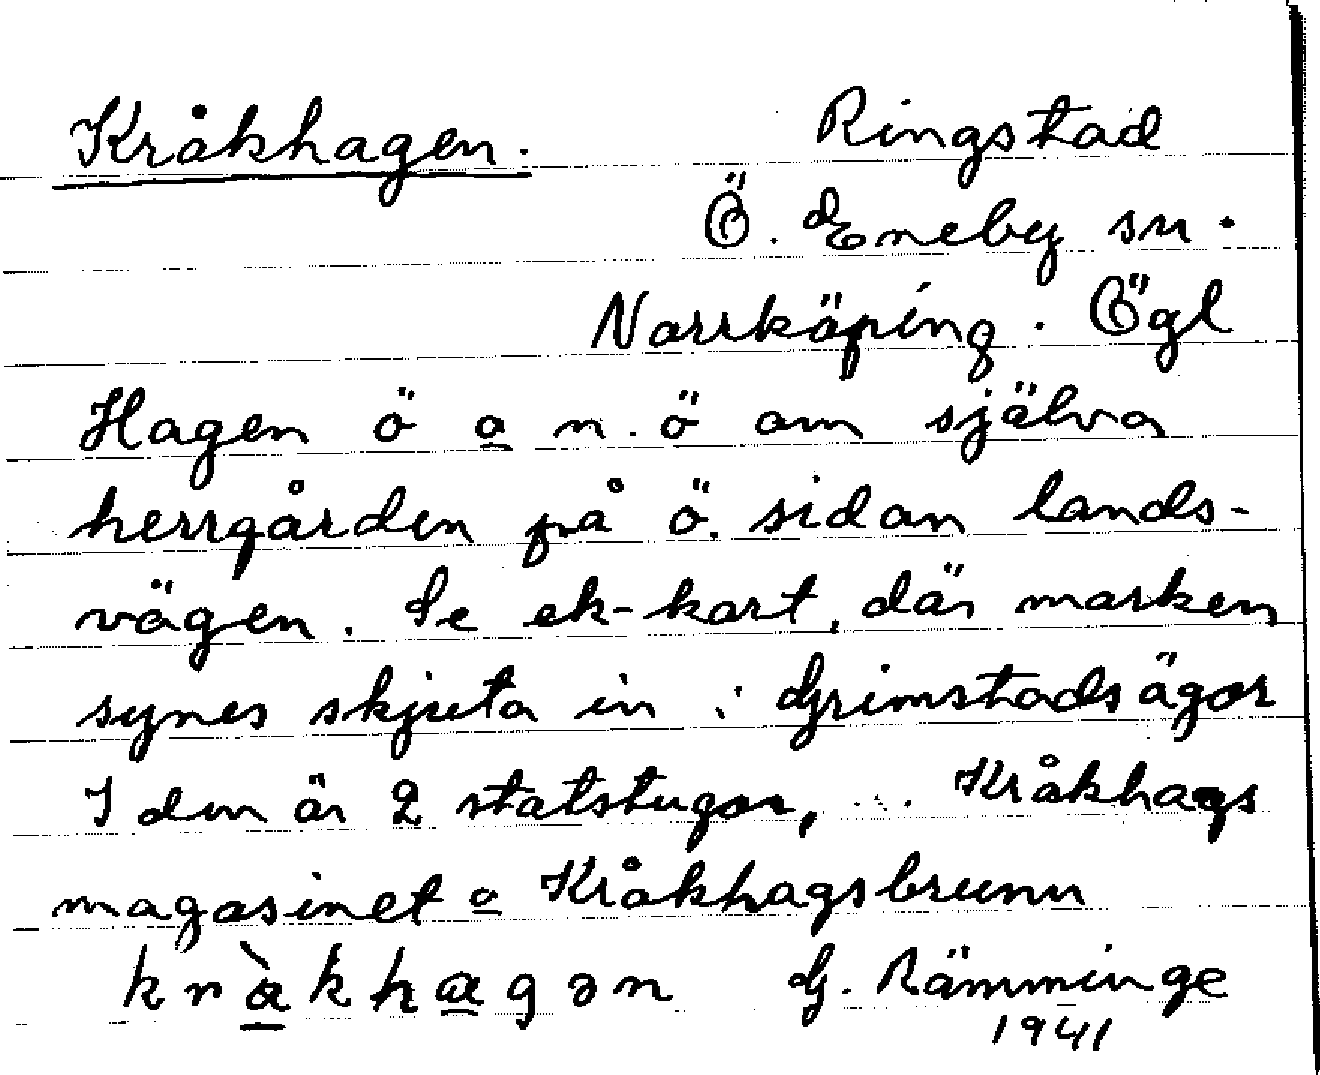 Kråkhagen. Ringstad
Ö. Eneby sn.
Norrköping. Ögl
Hagen ö o n.ö om själva
herrgården på ö. sidan lands-
vägen. Se ek-kart, där marken
synes skjuta in i Grimstadsägor
I den är 2 statstugor, Kråkhags
magasinet o Kråkhagsbrunn
kràkhagən G. Rämminge
1941